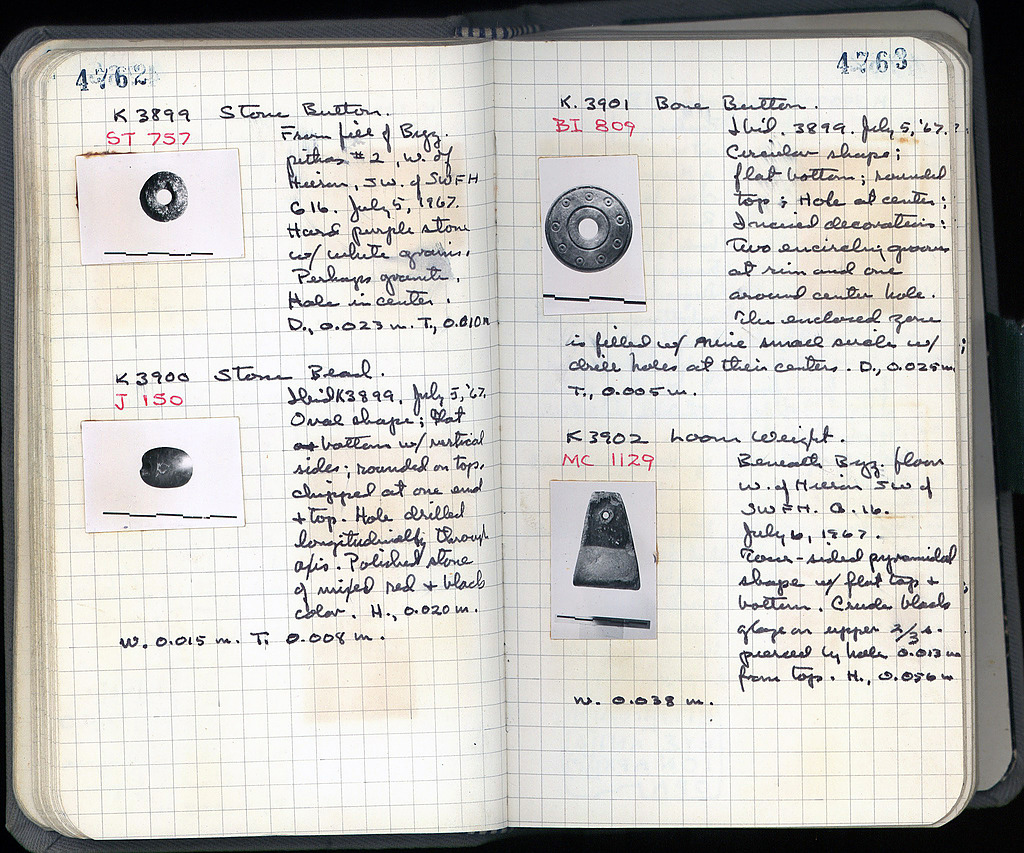 4762
K 3899 Stone Button.
ST 757
From fill of Byz.
pithos #2, W. of
Hieron, SW. of SWFH
G 16. July 5, 1967.
Hard purple stone
w/ white grains.
Perhaps granite.
Hole in center.
D., 0.023 m. T., 0.010 m
K 3900 Stone Bead.
J 150
Ibid K3899, July 5, '67.
Oval shape; flat
bottom w/ vertical
sides; rounded on top.
chipped at one end
+ top. Hole drilled
longitudinally through
axis. Polished stone
of mixed red + black
color. H., 0.020 m.
W. 0.015 m. T. 0.008 m.
4763
K. 3901 Bone Button.
BI 809
Ibid. 3899. July 5, '67.?
Circular shape;
flat bottom; rounded
top; Hole at center;
Incised decoration:
Two encircling grooves
at rim and one
around center hole.
The enclosed zone
is filled w/ nine small circles w/
drill holes at their centers. D., 0.025 m
T., 0.005 m.
K 3902 Loom Weight.
MC 1129
Beneath Byz. floor
W. of Hieron SW of
SWFH. G. 16.
July 6, 1967.
Four-sided pyramidal
shape w/ flat top +
bottom. Crude black
glaze on upper 2/3 s.
pierced by hole 0.013 m
from top. H., 0.056 m
W. 0.038 m.